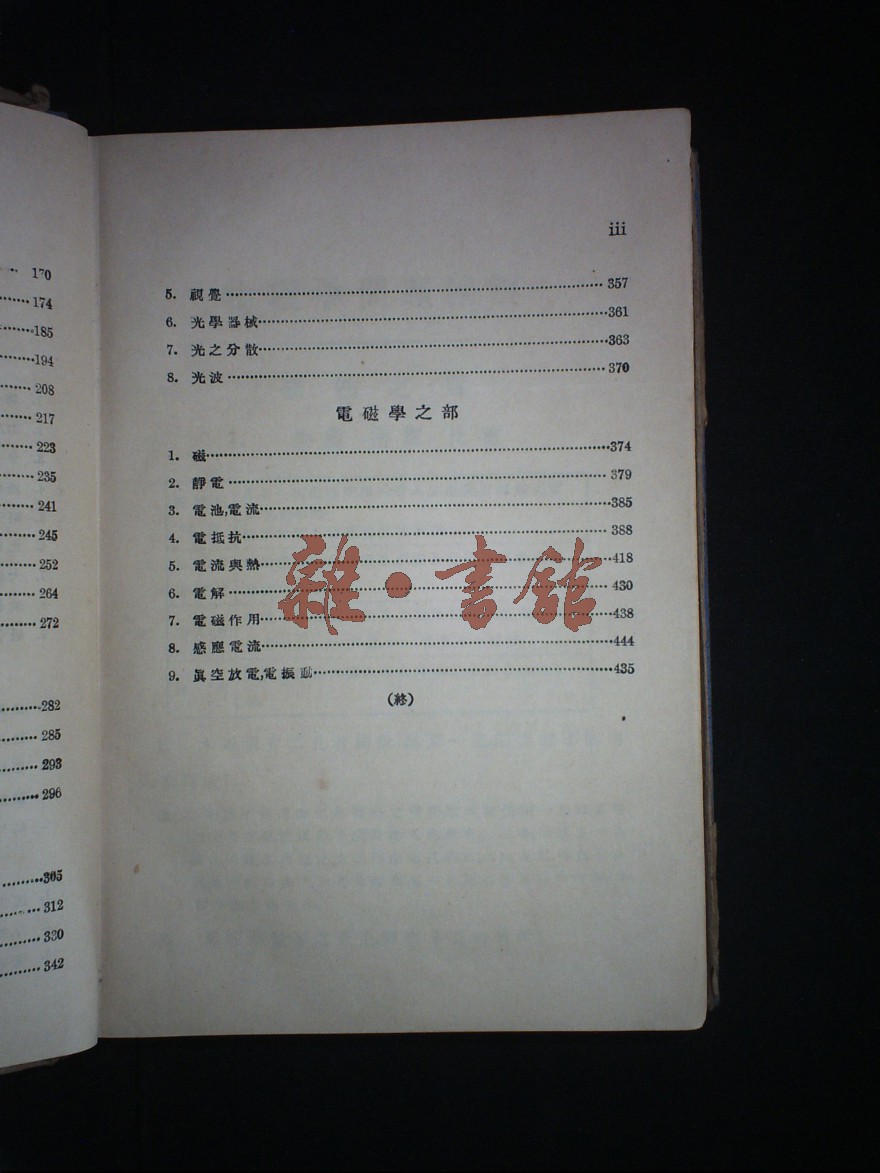 170
174
185
194
208
217
223
235
241
245
252
264
272
282
285
293
296
305
312
330
342
iii
5. 視覺 357
6. 光學器械 361
7. 光之分散 363
8. 光波 370
電磁學之部
1. 磁 374
2. 靜電 379
3. 電池,電流 385
4. 電抵抗 388
5. 電流與熱 418
6. 電解 430
7. 電磁作用 438
8. 感應電流 444
9. 眞空放電,電振動 435
(終)
雜·書館